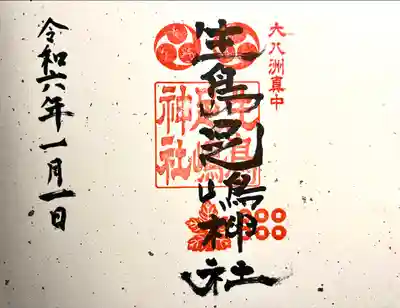 大八洲真中
生島足嶋神社
生島
足嶋
神社
令和六年一月一日